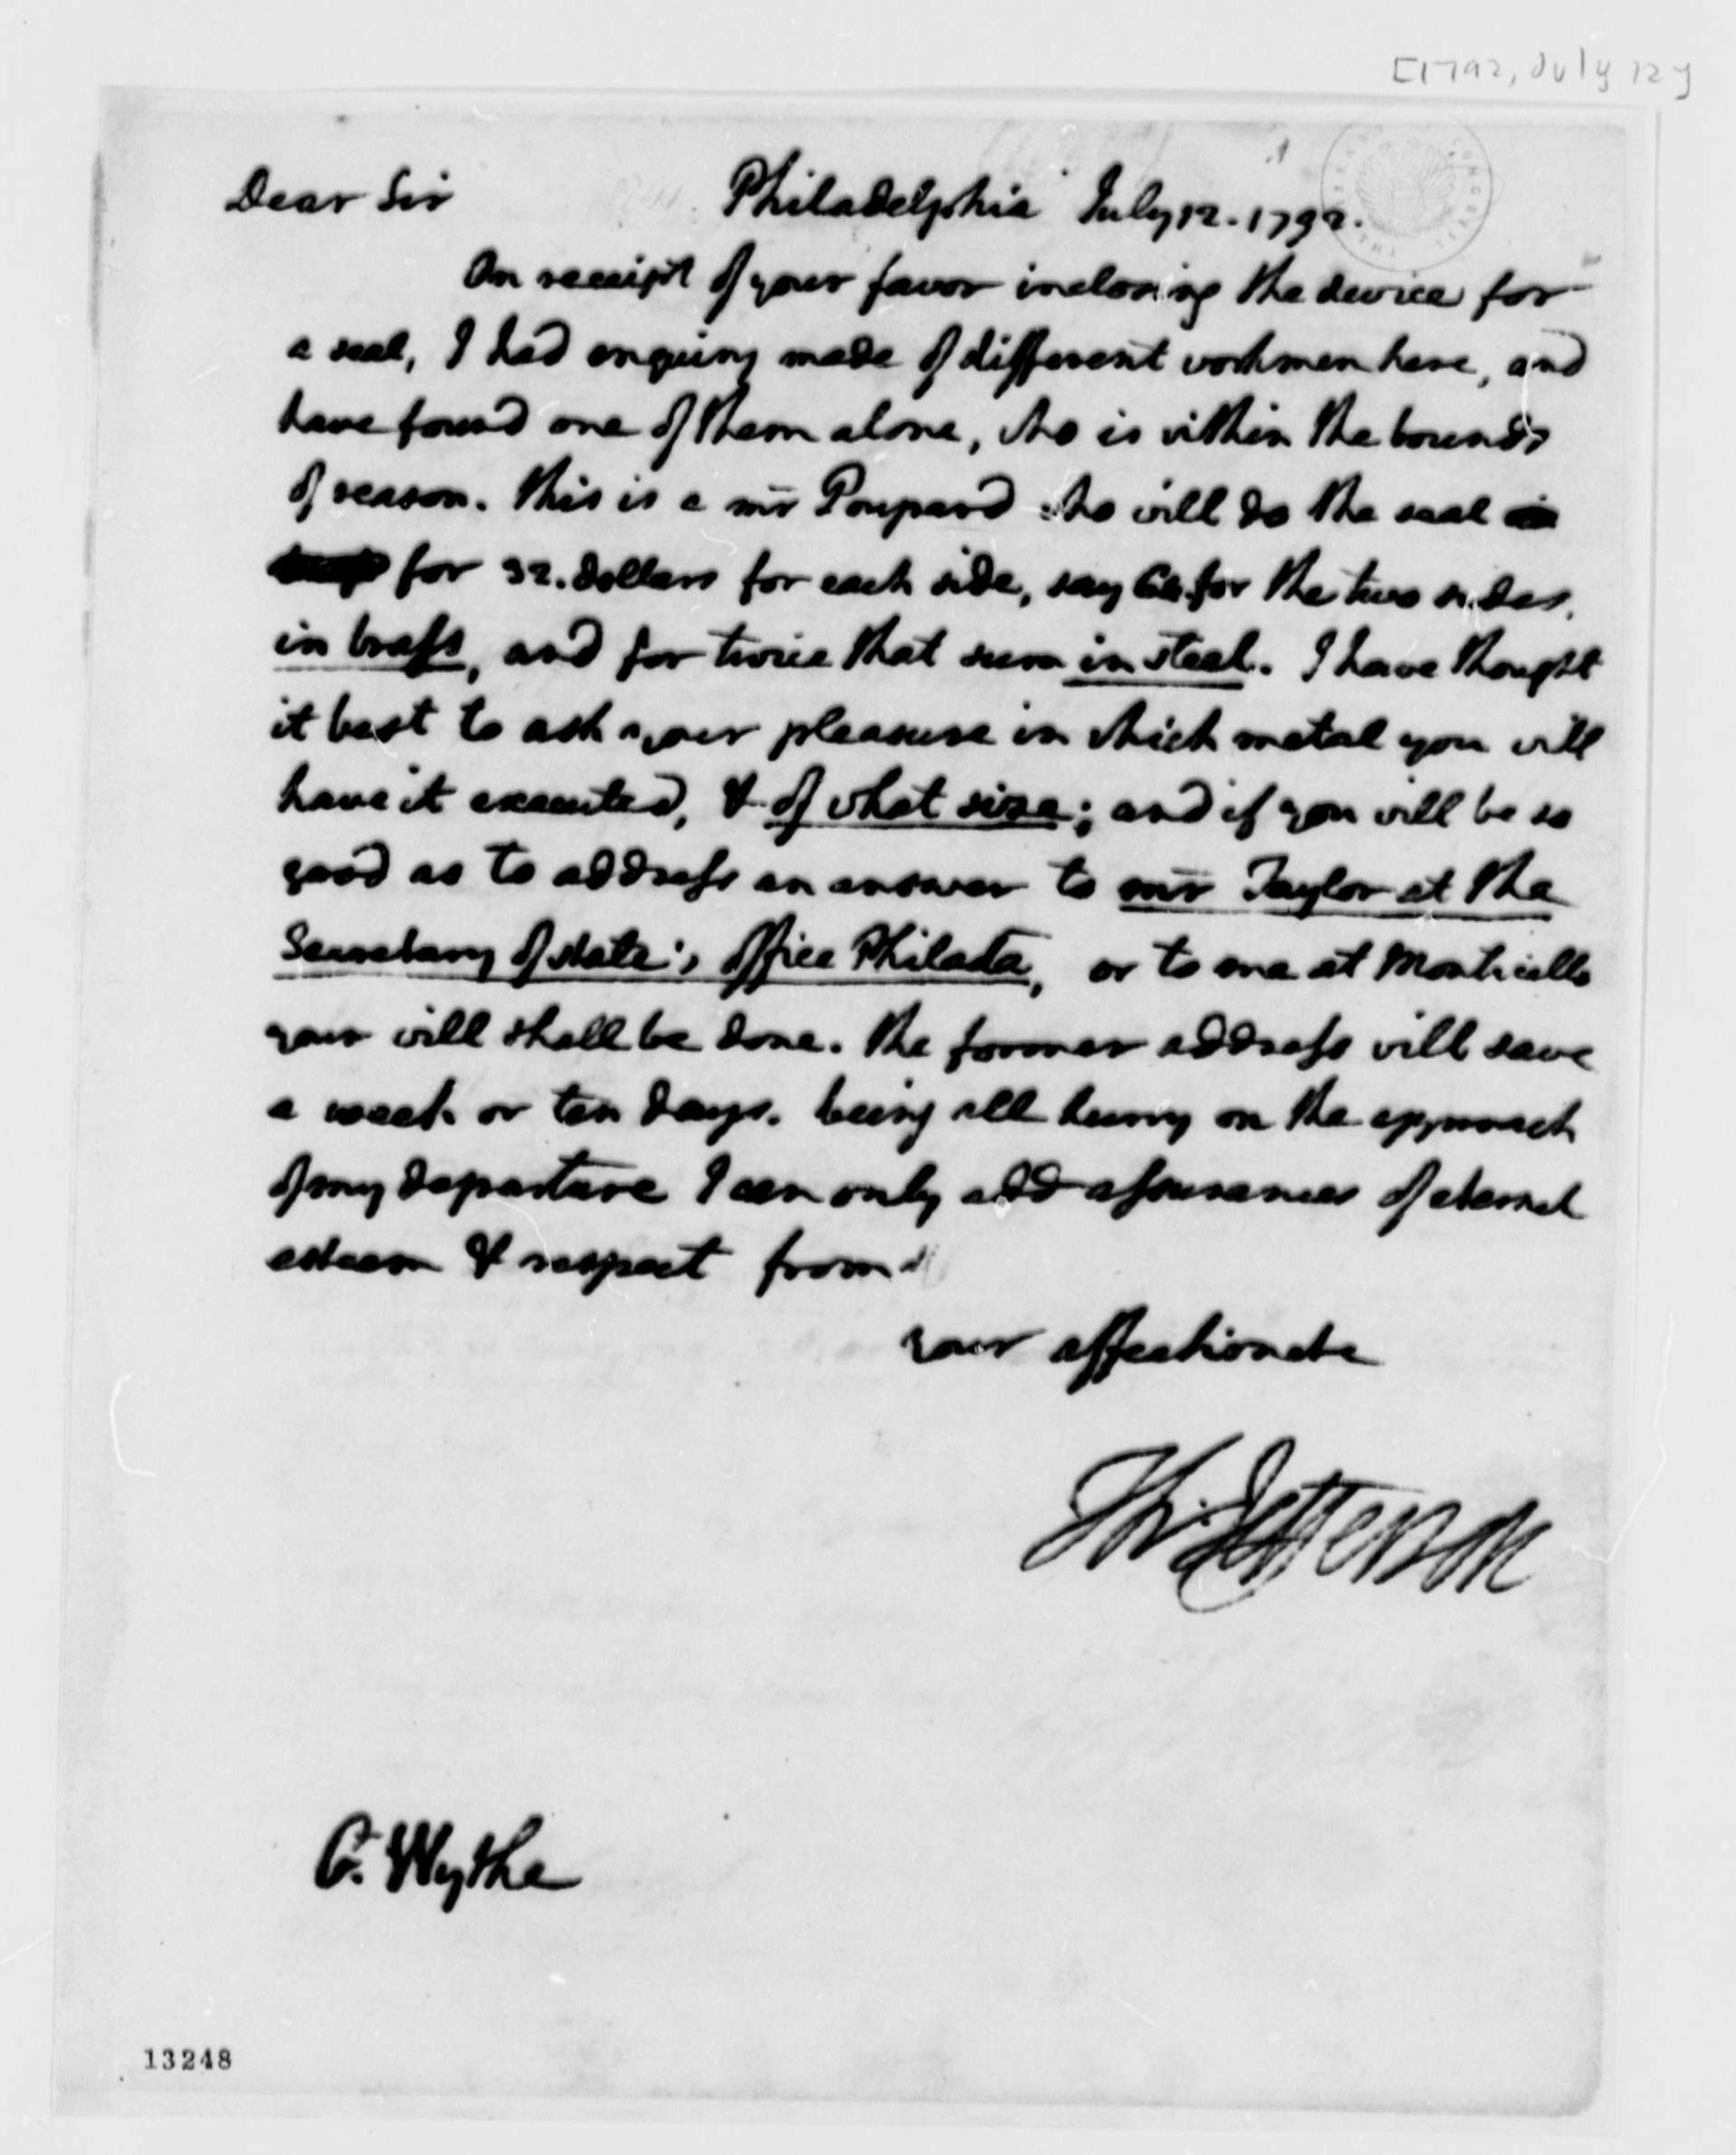 [1792, July 12]
Dear Sir Philadelphia July 12. 1792.
On receipt of your favor inclosing the device for
a seal, I had enquiry made of different workmen here, and
have found one of them alone, who is within the bounds
of reason. this is a mr Poupard who will do the seal
for 32. dollars for each side, say 64. for the two sides.
in brass, and for twice that sum in steel. I have thought
it best to ask your pleasure in which metal you will
have it executed, & of what size; and if you will be so
good as to address an answer to mr Taylor at the
Secretary of state's office Philada, or to me at Monticello
your will shall be done. the former address will save
a week or ten days. being all hurry on the approach
of my departure I can only add assurances of eternal
esteem & respect from
your affectionate
Th: Jefferson
G. Wythe
13248